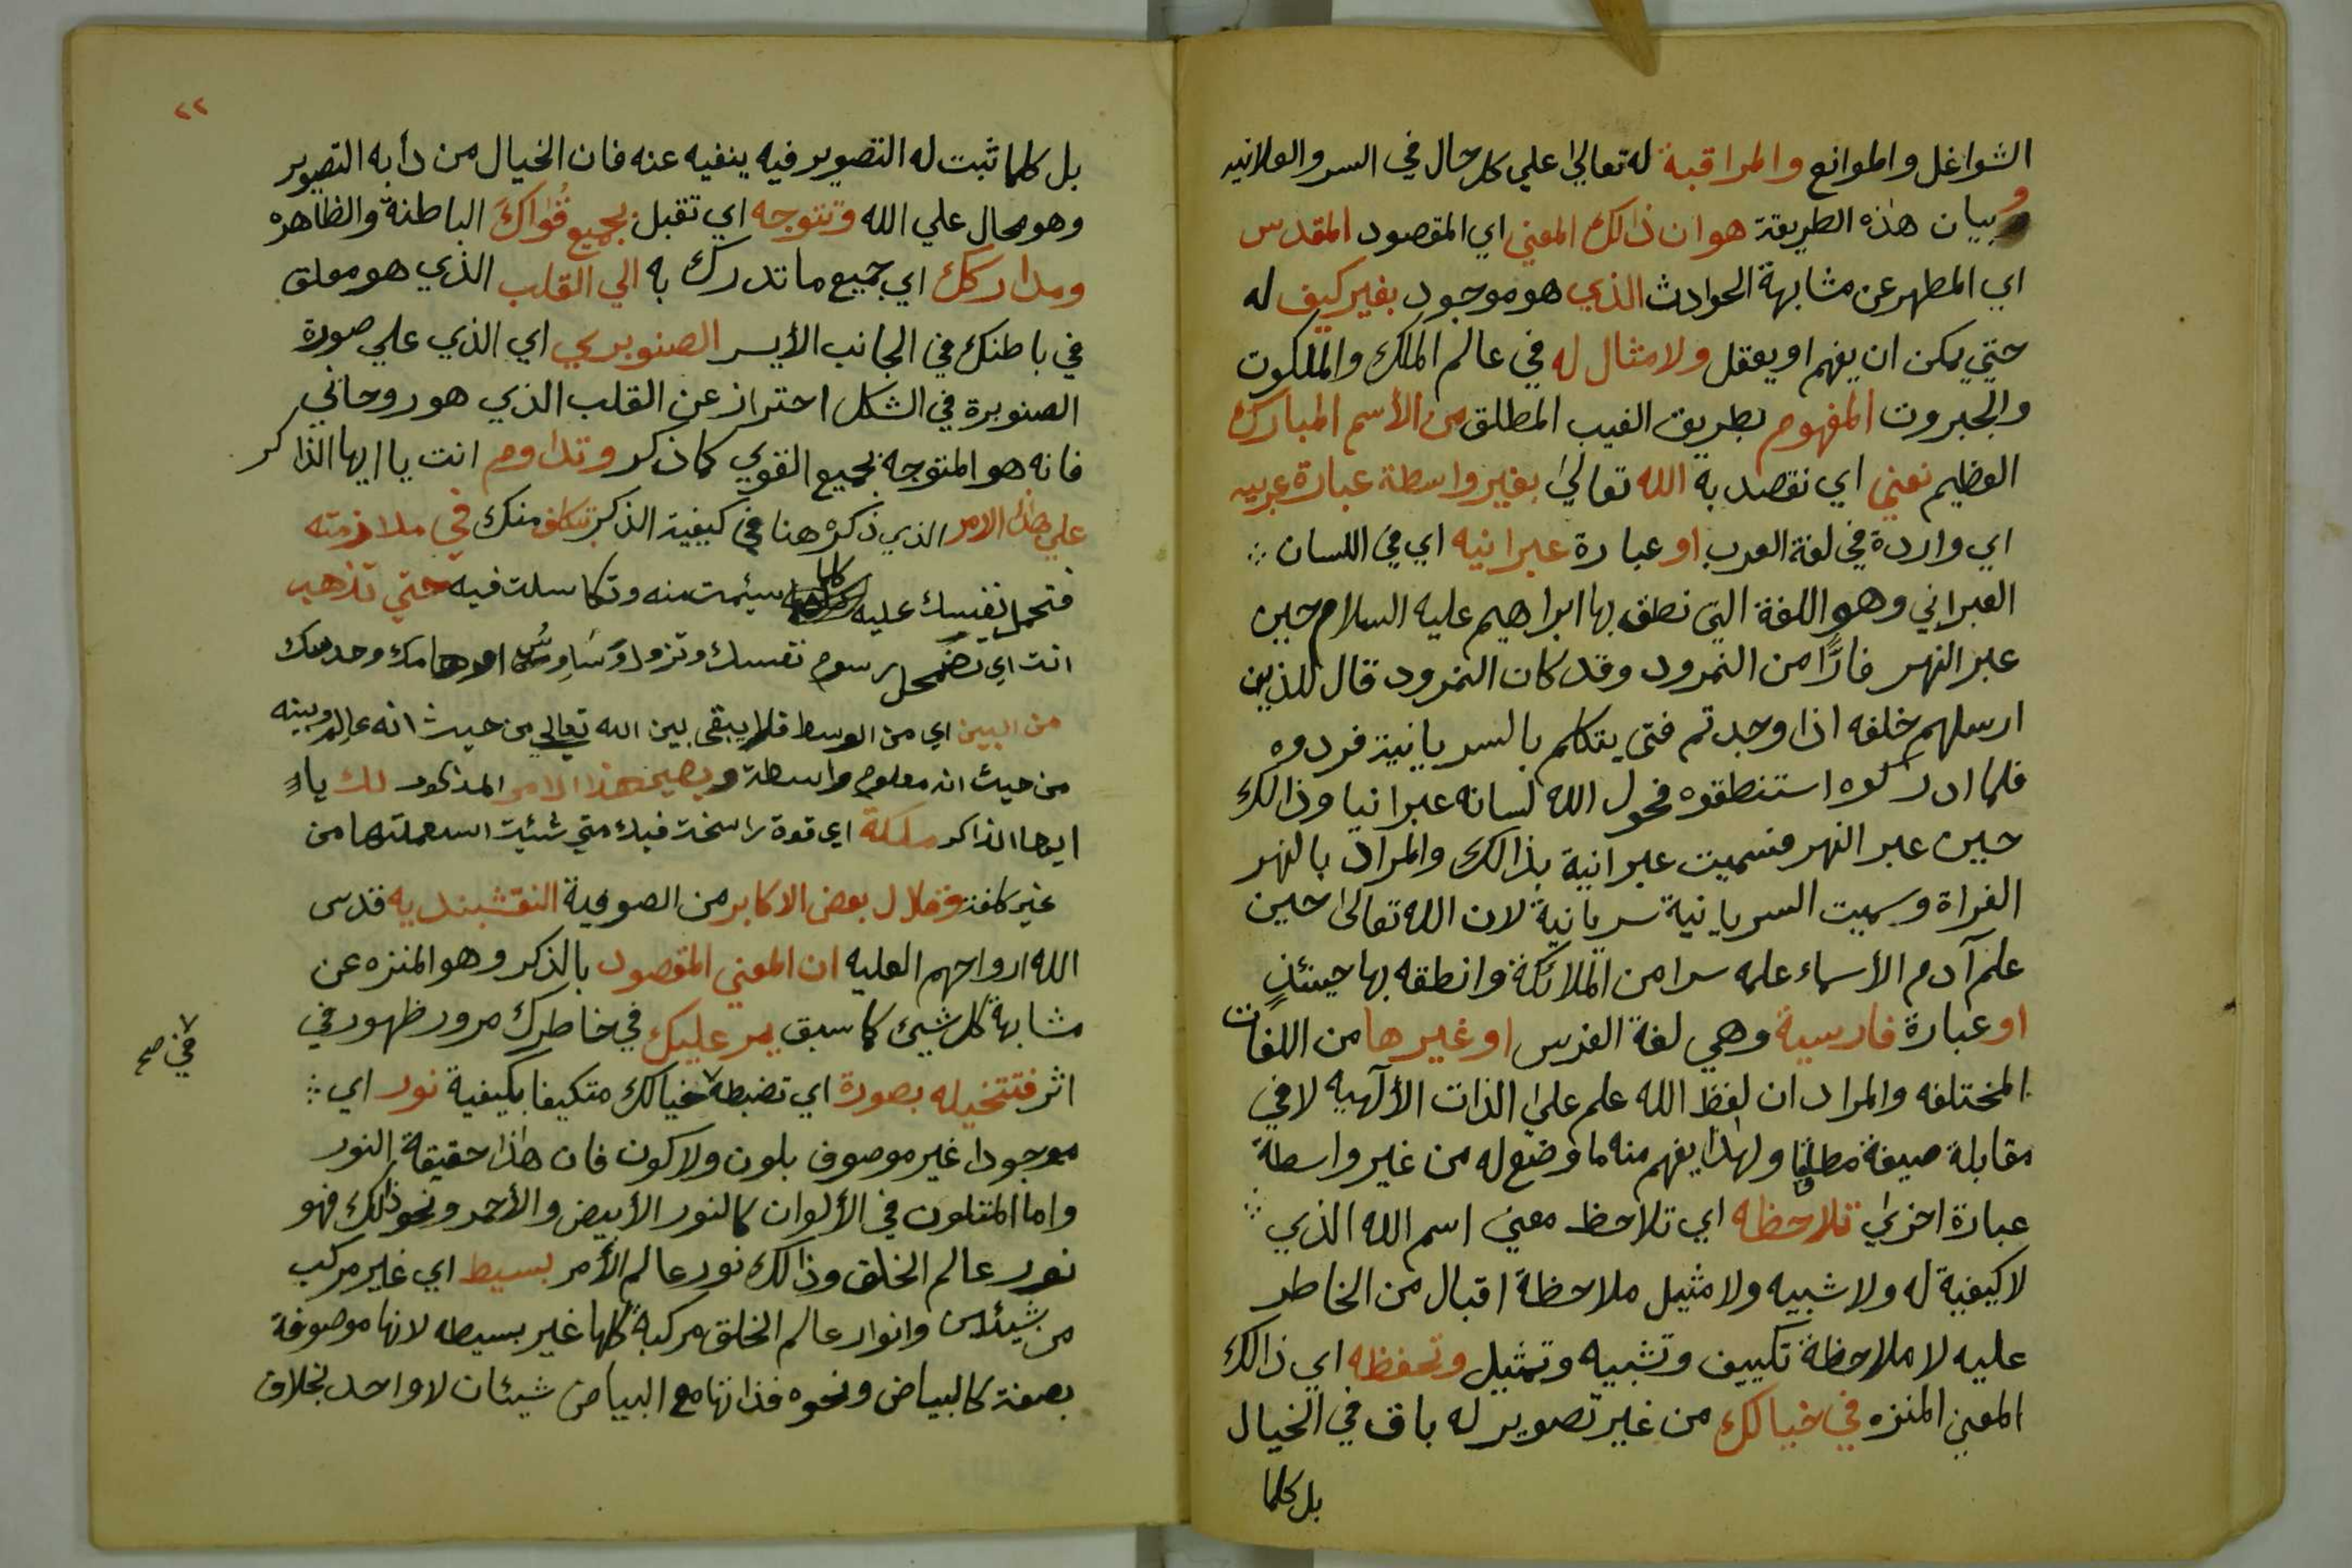 الشواغل والموانع والمراقبة له تعالى علي كل حال في السر والعلانيه
وبيان هذه الطريقة هو ان ذالك المعني اي المقصود المقدس
اي المطهر عن مشابهة الحوادث الذي هو موجود بغير كيف له
حتي يمكن ان يفهم او يعقل ولا مثال له في عالم الملك والملكوت
والجبروت المفهوم بطريق الغيب المطلق من الأسم المبارك
العظيم نعني اي نقصد به الله تعالى بغير واسطة عبارة عربيه
اي واردة في لغة العرب او عبارة عبرانيه اي في اللسان
العبراني وهو اللغة التي نطق بها ابراهيم عليه السلام حين
عبر النهر فارًّا من النمرود وقد كان النمرود قال للذين
ارسلهم خلفه اذا وجدتم فتى يتكلم بالسريانية فردوه
فلما ادركوه استنطقوه فحول الله لسانه عبرانيا وذالك
حين عبر النهر فسميت عبرانية بذالك والمراد بالنهر
الفراة وسميت السريانية سريانية لان الله تعالى حين
علم آدم الأسماء علمه سرا من الملائكة وانطقه بها حينئذٍ
او عبارة فارسية وهي لغة الفرس او غيرها من اللغات
المختلفه والمراد ان لفظ الله علم على الذات الألهيه لا في
مقابلة صيغة مطلقا ولهذا يفهم منه ما وضع له من غير واسطة
عبارة اخرى تلاحظه اي تلاحظ معنى اسم الله الذي
لا كيفية له ولا شبيه ولا مثيل ملاحظة اقبال من الخاطر
عليه لا ملاحظة تكييف وتشبيه وتمثيل وتحفظه اي ذالك
المعني المنزه في خيالك من غير تصوير له باق في الخيال
بل كلما
٢٢
بل كلما ثبت له التصوير فيه ينفيه عنه فان الخيال من دأبه التصوير
وهو محال علي الله وتتوجه اي تقبل بجميع قُواكَ الباطنة والظاهره
ومداركك اي جميع ما تدرك به الي القلب الذي هو معلق
في باطنك في الجانب الأيسر الصنوبري اي الذي علي صورة
الصنوبرة في الشكل احتراز عن القلب الذي هو روحاني
فانه هو المتوجه بجميع القوي كما ذكر وتداوم انت يا ايها الذاكر
علي هذا الامر الذي ذكر هنا في كيفية الذكر بتكلف منك في ملازمته
فتحمل نفسك عليه كلما سئمت منه وتكاسلت فيه حتي تذهب
انت اي تضمحل رسوم نفسك وتزول وَسَاوِسُ اوهامك وحدسك
من البين اي من الوسط فلا يبقى بين الله تعالي من حيث انه عالم وبينه
من حيث انه معلوم واسطة ويصير هذا الامر المذكور لك يا
ايها الذاكر ملكة اي قوة راسخة فيك متي شئت استعملتها من
غير كلفة وقال بعض الاكابر من الصوفية النقشبنديه قدس
الله ارواحهم العليه ان المعني المقصود بالذكر وهو المنزه عن
مشابهة كل شيئ كما سبق يمر عليك في خاطرك مرور ظهور في
اثر فتتخيله بصورة اي تضبطه خيالك متكيفا بكيفية نور اي
في صح
موجودا غير موصوف بلون ولا كون فان هذا حقيقة النور
واما المتلون في الألوان كالنور الأبيض والأحمر ونحو ذلك فهو
نور عالم الخلق وذالك نور عالم الأمر بسيط اي غير مركب
من شيئين وانوار عالم الخلق مركبة كلها غير بسيطه لانها موصوفة
بصفة كالبياض ونحوه فذاتها مع البياض شيئان لا واحد بخلاف